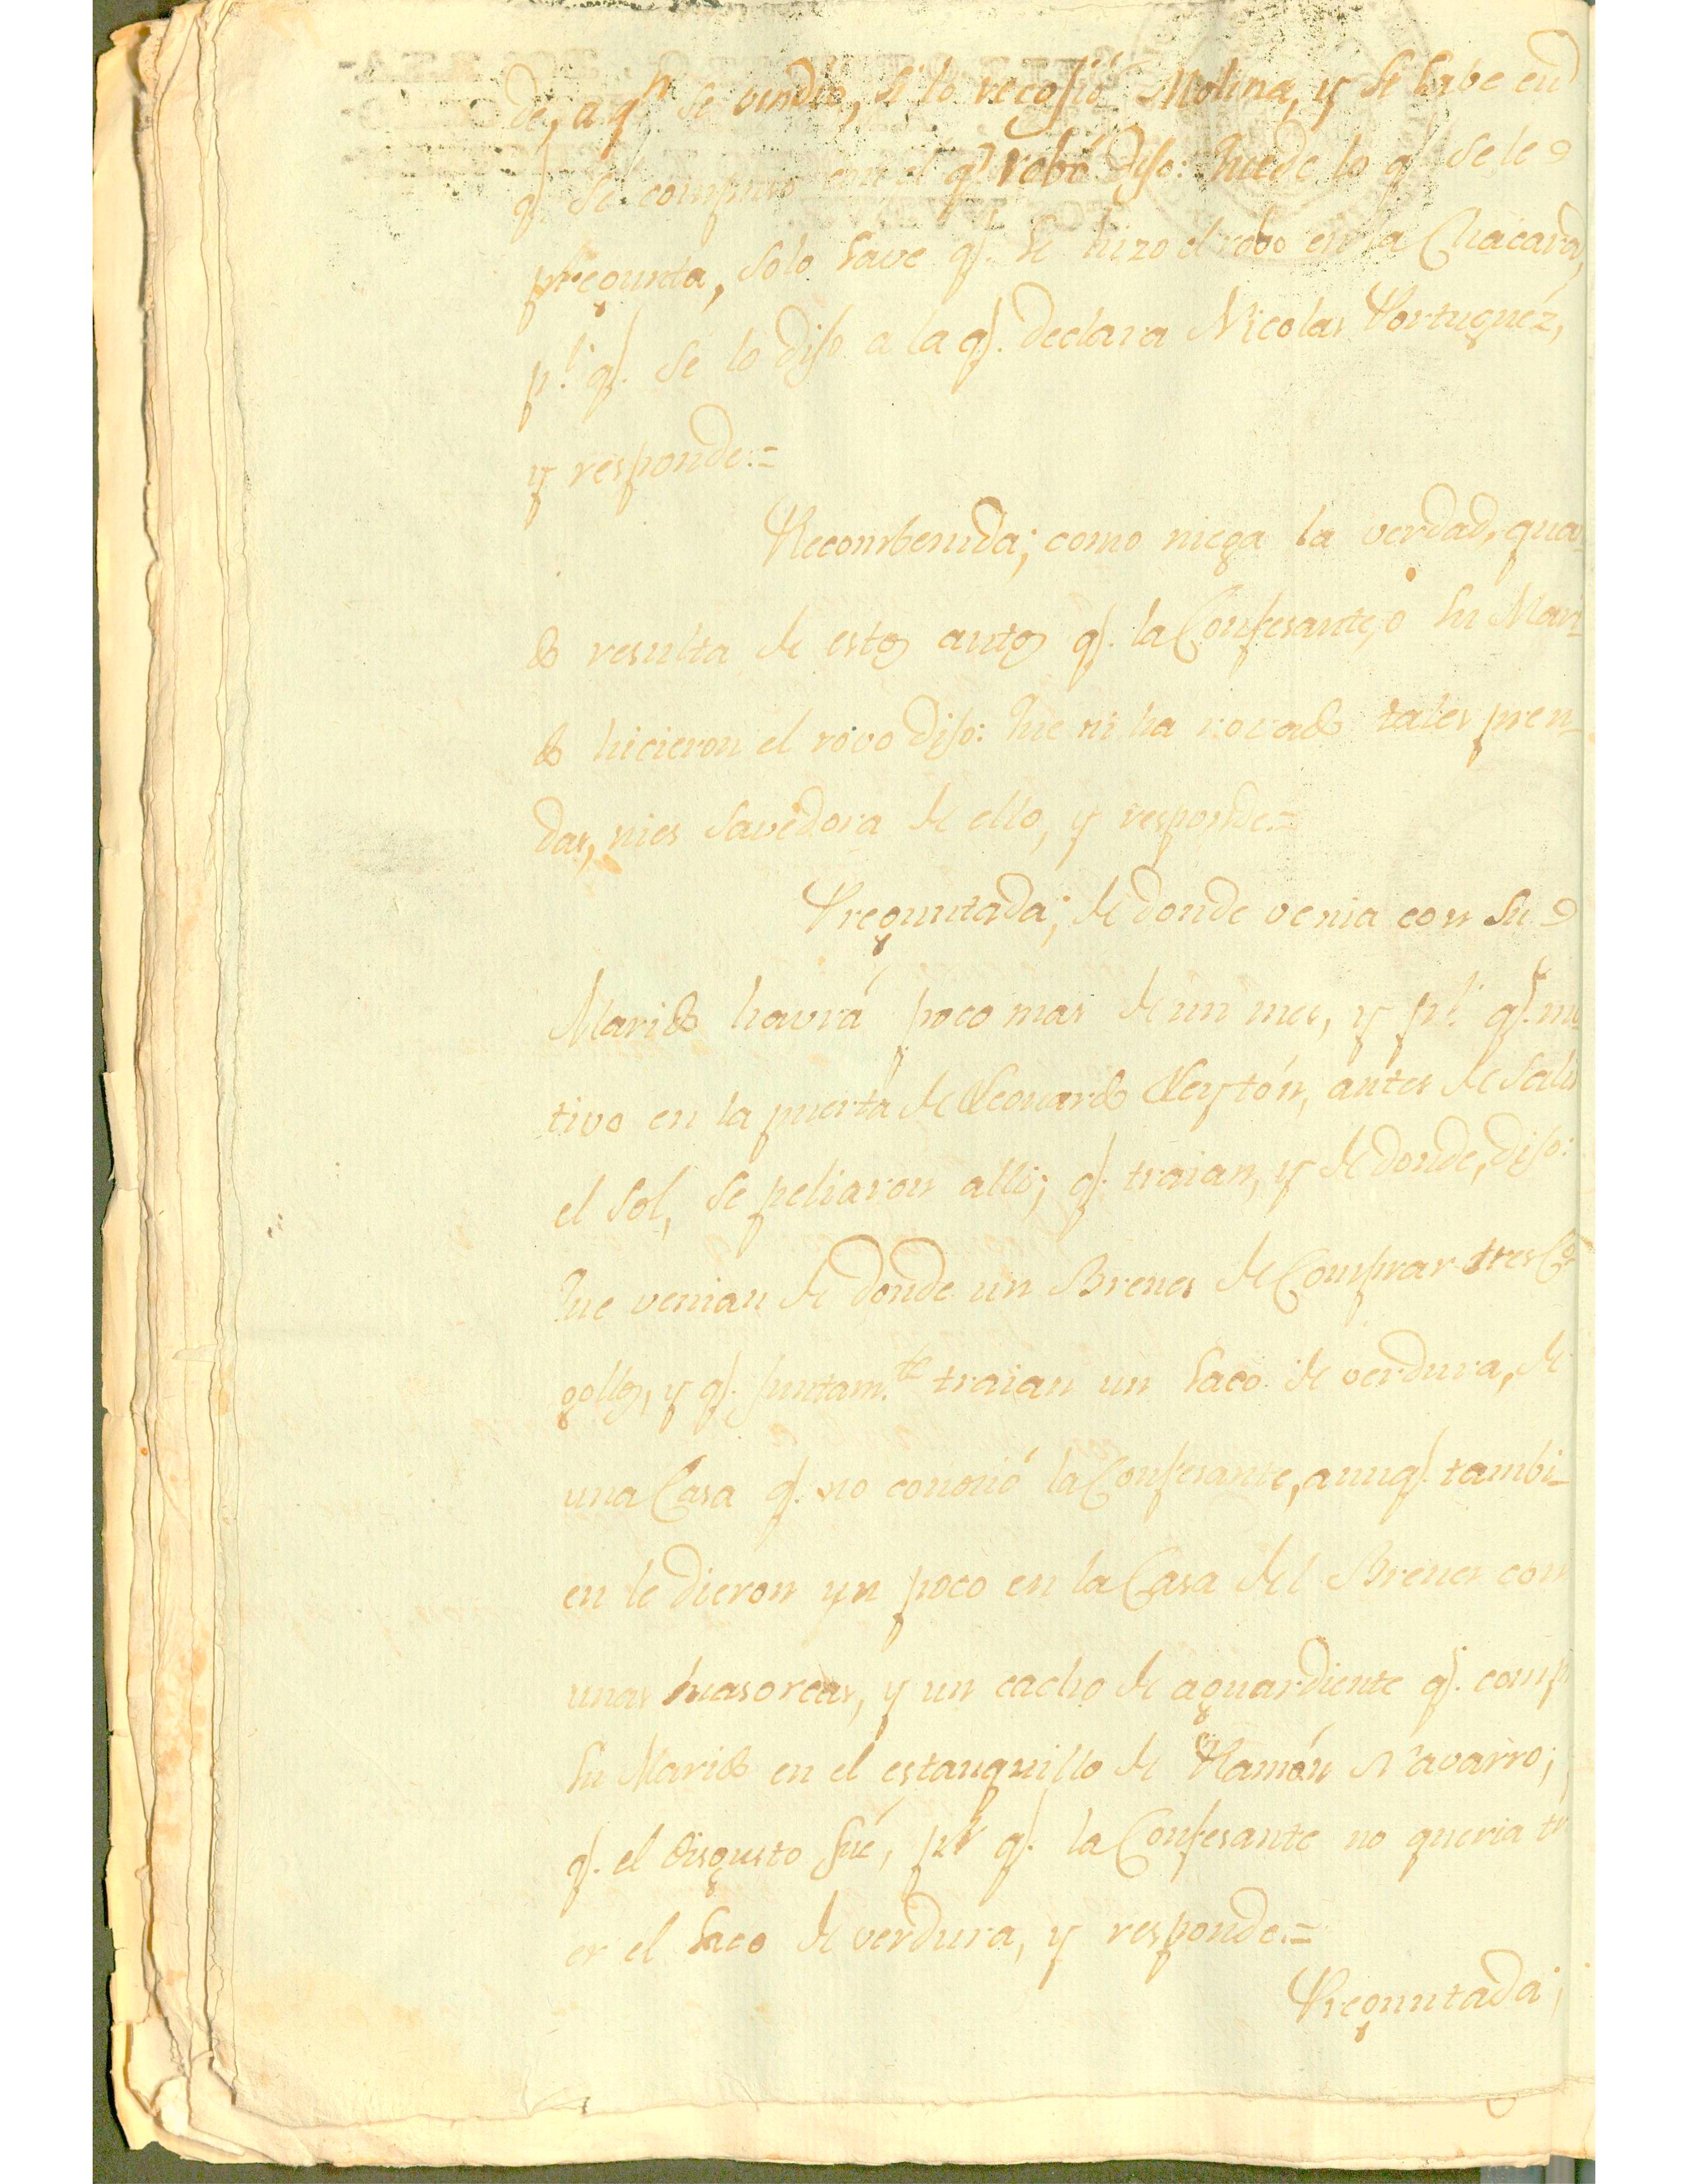 de, a qn se vendió, si lo recojió Molina, y si sabe en
q. se compuso con el q. robó dijo: Que de lo q. se le
pregunta, solo save q. se hizo el robo en la Chácara,
pr. q. se lo dijo a la q. declara Nicolas Portuguéz,
y responde.=
Recombenida; como niega la verdad, quan
do resulta de estos autos q. la Confesante, o su Mari
do hicieron el rovo dijo: Que ni ha rovado tales pren-
das, ni es Savedora de ello, y responde.=
Preguntada; de donde venia con su
Marido havrá poco mas de un mes, y pr. q. mo
tivo en la puerta de Leonardo Leytón, ántes de Salir
el Sol, se peliaron alli; q. traian, y de donde, dijo:
Que venian de donde un Brenes de Comprar tres Co
gollos, y q. juntam.te traian un Saco de verdura, de
una Casa q. no conoció la Confesante, aunq. tambi-
en le dieron un poco en la Casa del Brenes con
unas masorcas, y un cacho de aguardiente q. comp
su Marido en el estanquillo de Ramón Navarro;
q. el disgusto fué, pr q. la Confesante no queria tr
er el Saco de verdura, y responde.=
Preguntada;